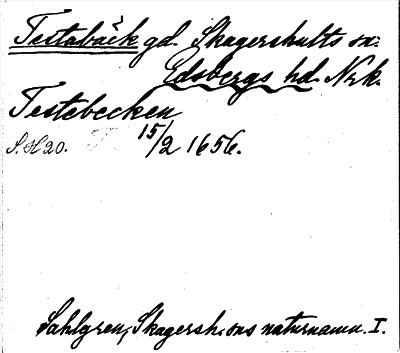 Testabäck gd. Skagershults sn:
Edsbergs hd. Nrk.
Testebecken
S. H 20. 15/2 1656.
Sahlgren, Skagersh:s sns naturnamn. I.